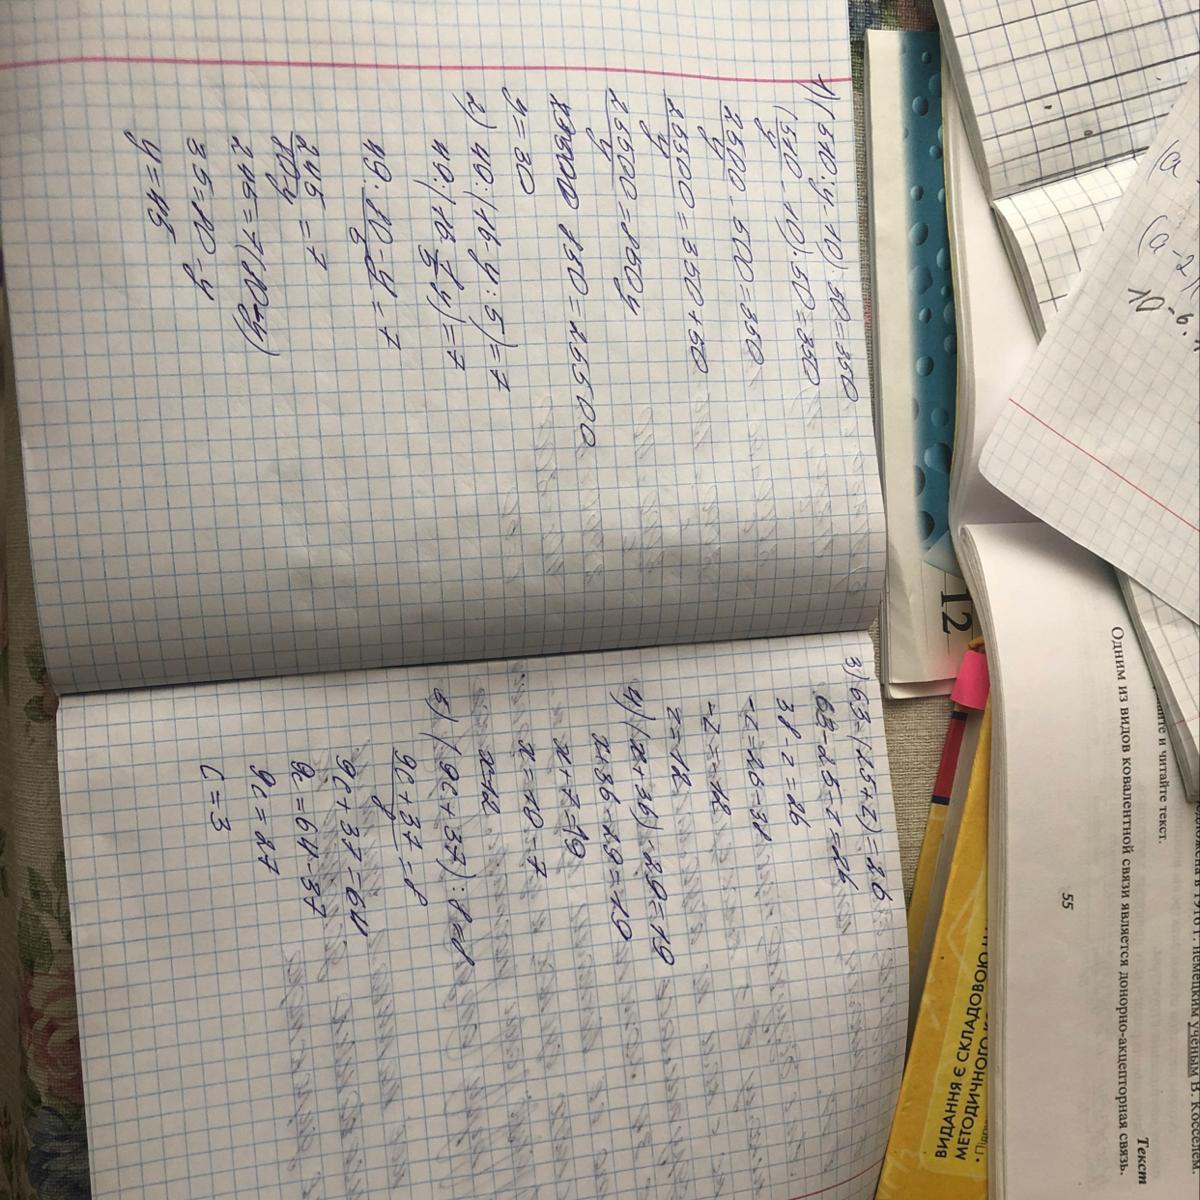 1) (510:y-10)·50=350
(510/y-10)·50=350
25500/y-500=350
25500/y=350+50
25500/y=850y
850=25500
y=30
2) 49:(16-y:5)=7
49:(16-y/5)=7
49:80-y/5=7
245/80-y=7
245=7(80-y)
35=80-y
y=45
3) 63-(25+z)=26
63-25-z=26
38-z=26
-z=26-38
-z=-12
z=12
4) (x+36)-29=19
x+36-29=19
x+7=19
x=19-7
x=12
5) (9c+37):8=8
9c+37/8=8
9c+37=64
9c=64-37
9c=27
c=3
12
(a
(a-2)
55
Одним из видов ковалентной связи является донорно-акцепторная связь.
и читайте текст.
Текст
немецким ученым В. Косселем.
ВИДАННЯ Є СКЛАДОВОЮ
МЕТОДИЧНОГО